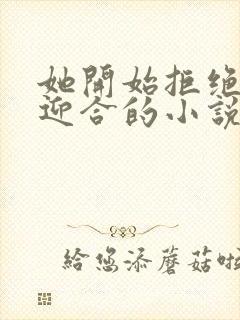 她開始拒绝
迎合的小說
給您添蘑菇啦